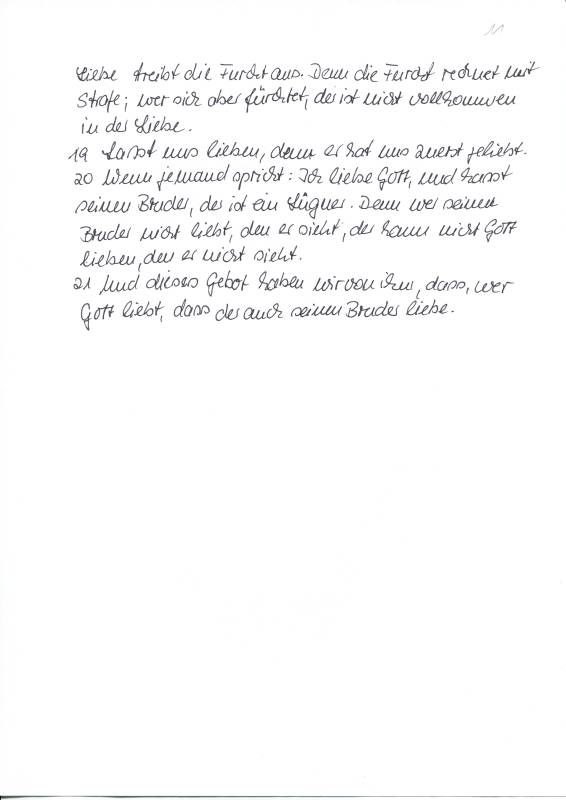 11
Liebe treibt die Furcht aus. Denn die Furcht rechnet mit
Strafe; wer sich aber fürchtet, der ist nicht vollkommen
in der Liebe.
19 Lasst uns lieben, denn er hat uns zuerst geliebt.
20 Wenn jemand spricht: Ich liebe Gott, und hasst
seinen Bruder, der ist ein Lügner. Denn wer seinen
Bruder nicht liebt, den er sieht, der kann nicht Gott
lieben, den er nicht sieht.
21 Und dieses Gebot haben wir von ihm, dass, wer
Gott liebt, dass der auch seinen Bruder liebe.